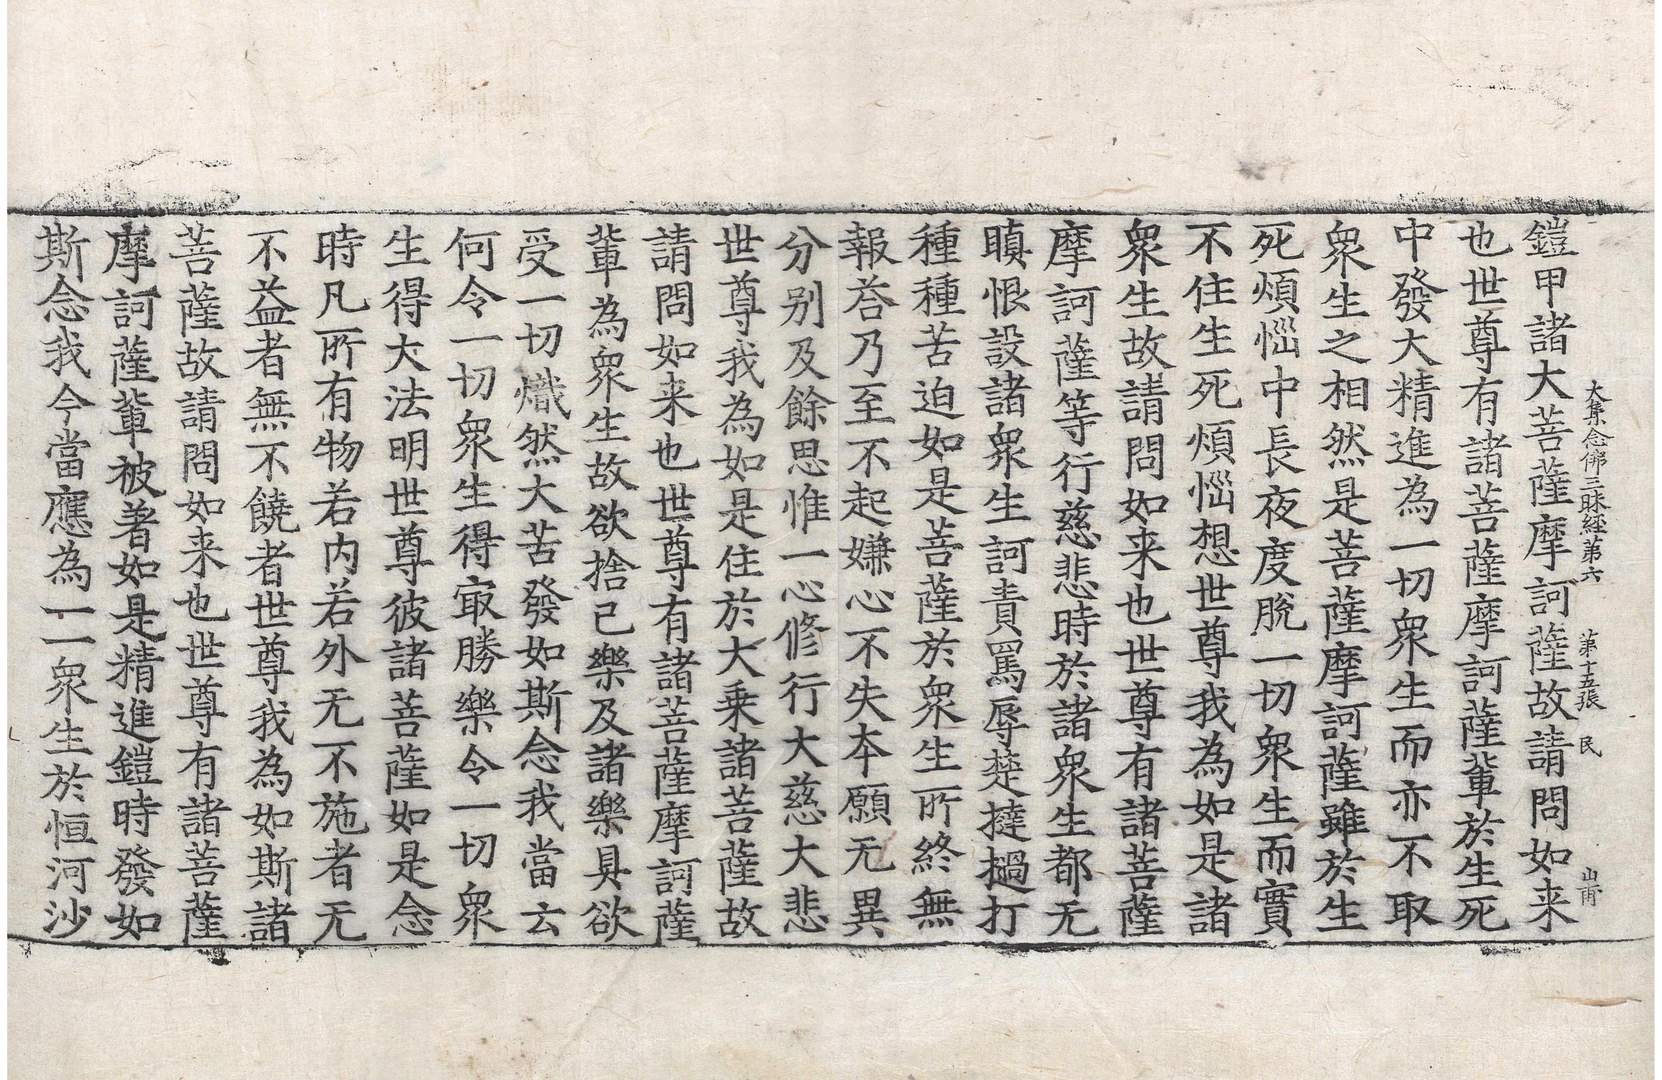 大集念佛三昧経第六 第十五張 民 山甫
鎧甲諸大菩薩摩訶薩故請問如来
也世尊有諸菩薩摩訶薩軰於生死
中發大精進為一切衆生而亦不取
衆生之相然是菩薩摩訶薩雖於生
死煩惱中長夜度脫一切衆生而實
不住生死煩惱想世尊我為如是諸
衆生故請問如来也世尊有諸菩薩
摩訶薩等行慈悲時於諸衆生都无
瞋恨設諸衆生訶責罵辱楚撻撾打
種種苦迫如是菩薩於衆生所終無
報荅乃至不起嫌心不失本願无異
分别及餘思惟一心修行大慈大悲
世尊我為如是住於大乗諸菩薩故
請問如来也世尊有諸菩薩摩訶薩
軰為衆生故欲捨己樂及諸樂具欲
受一切熾然大苦發如斯念我當云
何令一切衆生得㝡勝樂令一切衆
生得大法明世尊彼諸菩薩如是念
時凡所有物若内若外无不施者无
不益者無不饒者世尊我為如斯諸
菩薩故請問如来也世尊有諸菩薩
摩訶薩軰被著如是精進鎧時發如
斯念我今當應為一一衆生於恒河沙